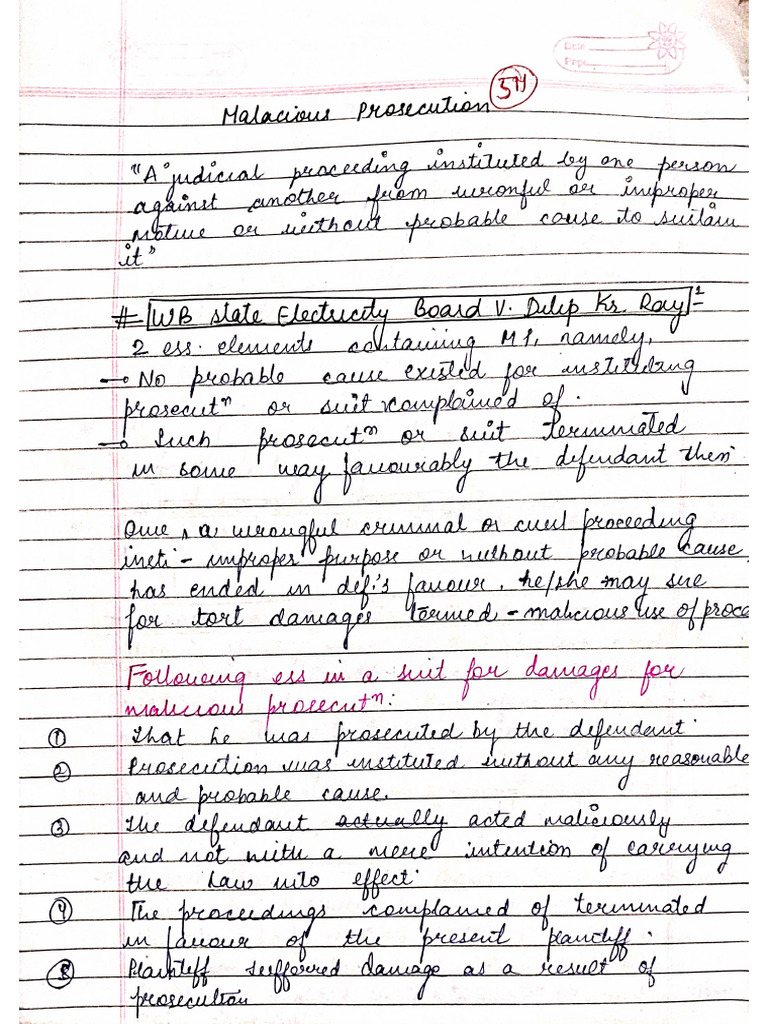 Date
Page
Malacious Prosecution
"A judicial proceeding instituted by one person
against another from wronful or improper
motive or without probable cause to sustain
it"
# WB State Electricity Board V. Dilip Kr. Ray :-
2 ess. elements containing MP, namely,
→ No probable cause existed for instituting
prosecutⁿ or suit complained of.
→ Such prosecutⁿ or suit terminated
in some way favourably the defendant then
One, a wrongful criminal or civil proceeding
insti - improper purpose or without probable cause,
has ended in def's favour, he/she may sue
for tort damages termed - malicious use of proce
Following ess in a suit for damages for
malicious prosecutⁿ:
① That he was prosecuted by the defendant.
② Prosecution was instituted without any reasonable
and probable cause.
③ The defendant actually acted maliciously
and not with a mere intention of carrying
the Law into effect.
④ The proceedings complained of terminated
in favour of the present plaintiff.
⑤ Plaintiff sufferred damage as a result of
prosecution